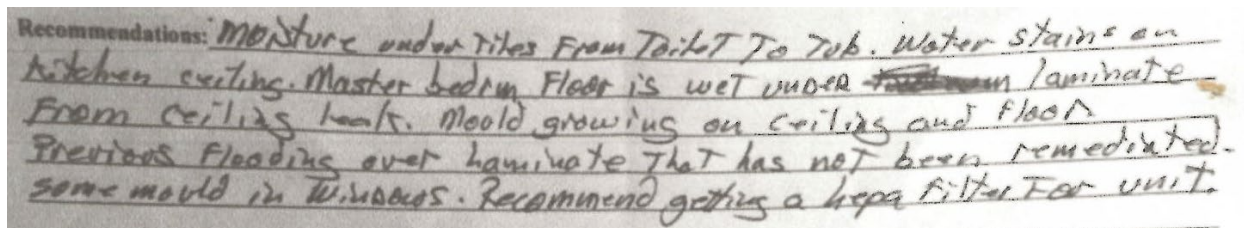 Recommendations: Moisture under Tiles From Toilet To Tub. Water stains on
Kitchen ceiling. Master bedrm Floor is wet under laminate
From ceiling leak. Mould growing on ceiling and floor
Previous Flooding over Laminate That has not been remediated.
some mould in Windows. Recommend getting a hepa Filter For unit.